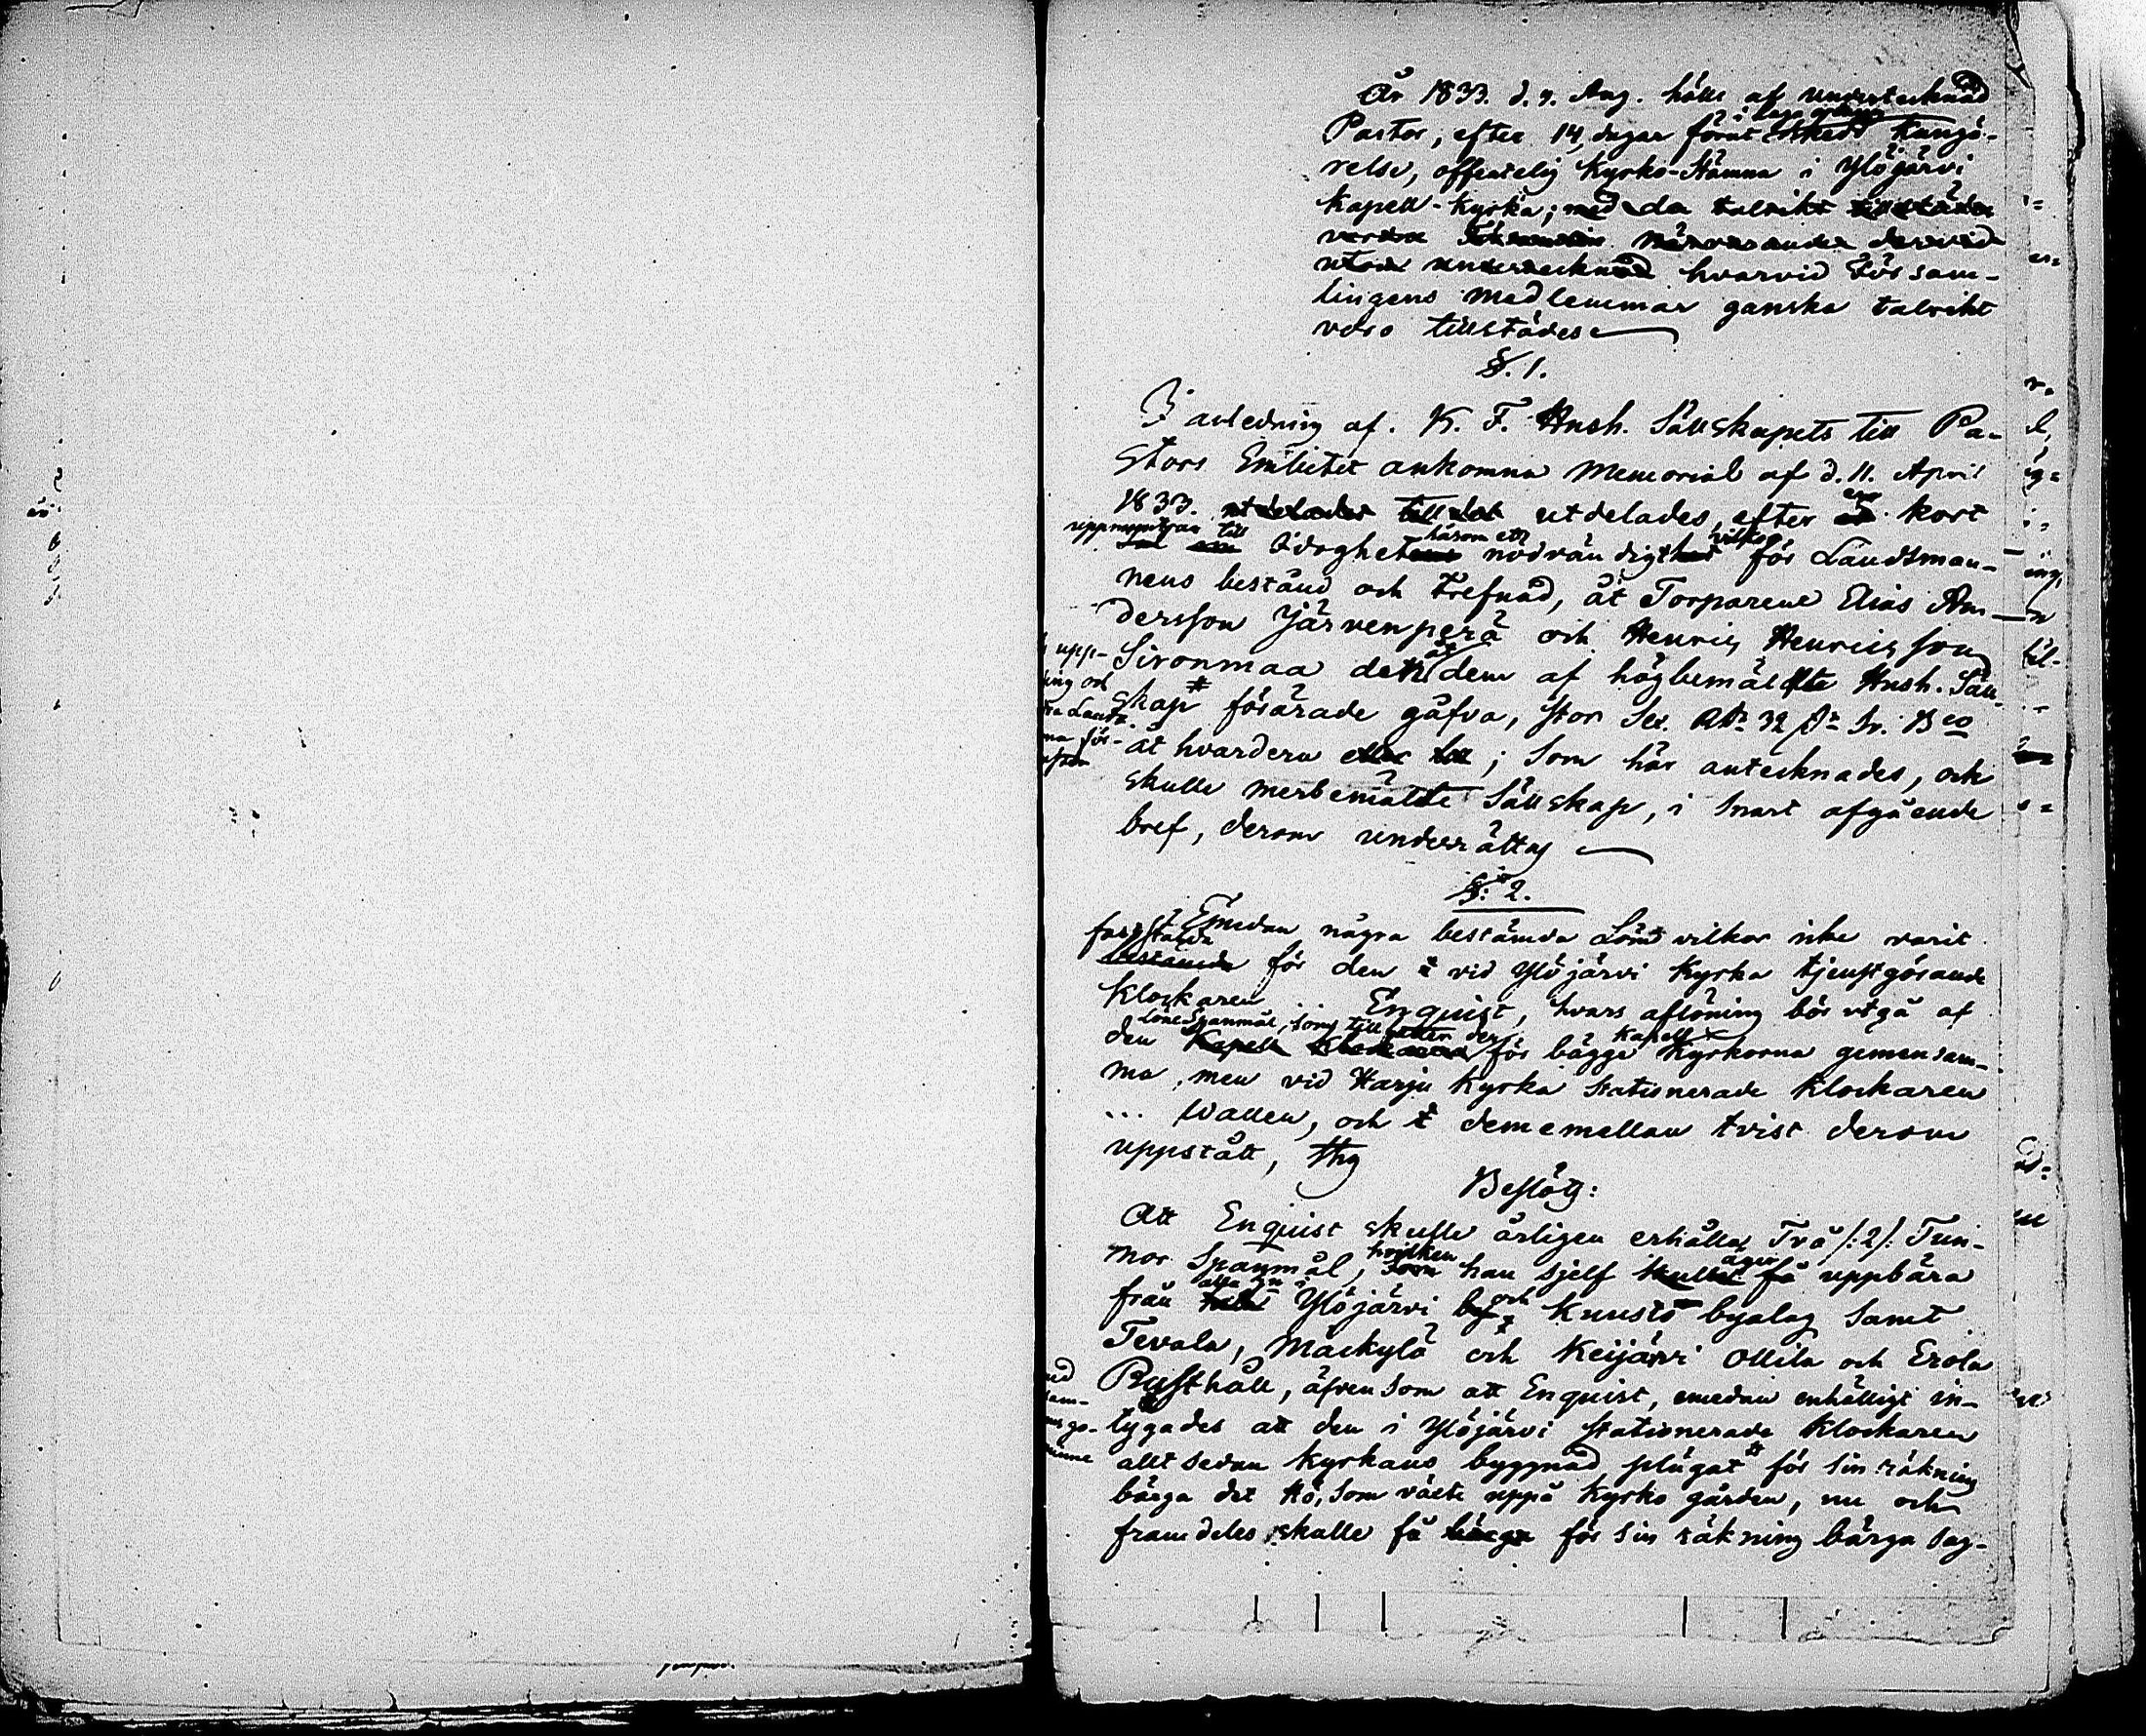 År 1833. d. 9. Aug. hölls af undertecknad
Pastor, efter 14 dagar förut i laga ordning skedd kungö-
relse, offentelig Kyrko-Stämma i Ylöjärvi
Kapell-Kyrka; med da talrikt tillstädes
närvarande dervid
utom undertecknad hvarvid Församm-
lingens medlemmar ganska talrikt
voro tillstädes
§. 1.
I anledning af K. F. Hush. Sällskapets till Pa-
stors Embetet ankomna Memorial af d. 11. April
1833. utdelades till det utdelades, efter en kort
uppmuntran till Idoghet såsom ett nödvändigt vilkor för Landtman-
nens bestånd och trefnad, åt Torparene Elias An-
dersson Järvenperä och Henric Henricsson
Sironmaa den åt dem af högbemälte Hush. Säll-
skap # förärade gåfva, stor Sex Rdr 32 s. Sv. Bco
åt hvardera ; Som här antecknades, och
skulle merbemälte Sällskap, i snart afgående
bref, derom underrättas
§: 2.
Emedan några bestämda Löne vilkor icke varit
fastställda bestämda för den vid Ylöjärvi Kyrka tjenstgörande
Klockaren Enquist, hvars aflöning bör utgå af
den Lönespanmål, som tillkommer den för bägge Kapell Kyrkorna gemensam-
ma, men vid Harju Kyrka stationerade Klockaren
... Wallen, och dememellan tvist derom
uppstått, ty
Beslöts:
Att Enquist skulle årligen erhålla Två /:2/: Tun-
nor Spanmål, hvilken som han sjelf äger uppbära
från alla i Ylöjärvi och Kuusto byalag samt
Tevala, Mäckylä och Keijärvi Ollila och Erola
Rusthåll, äfvensom att Enquist, emedan enhälligt in-
tygades att den i Ylöjärvi stationerade Klockaren
allt sedan Kyrkans byggnad plägat # för sin räkning
bärga det Hö, som växte uppå Kyrko gården, nu och
framdeles skulle få bärga för sin räkning bärga sag-